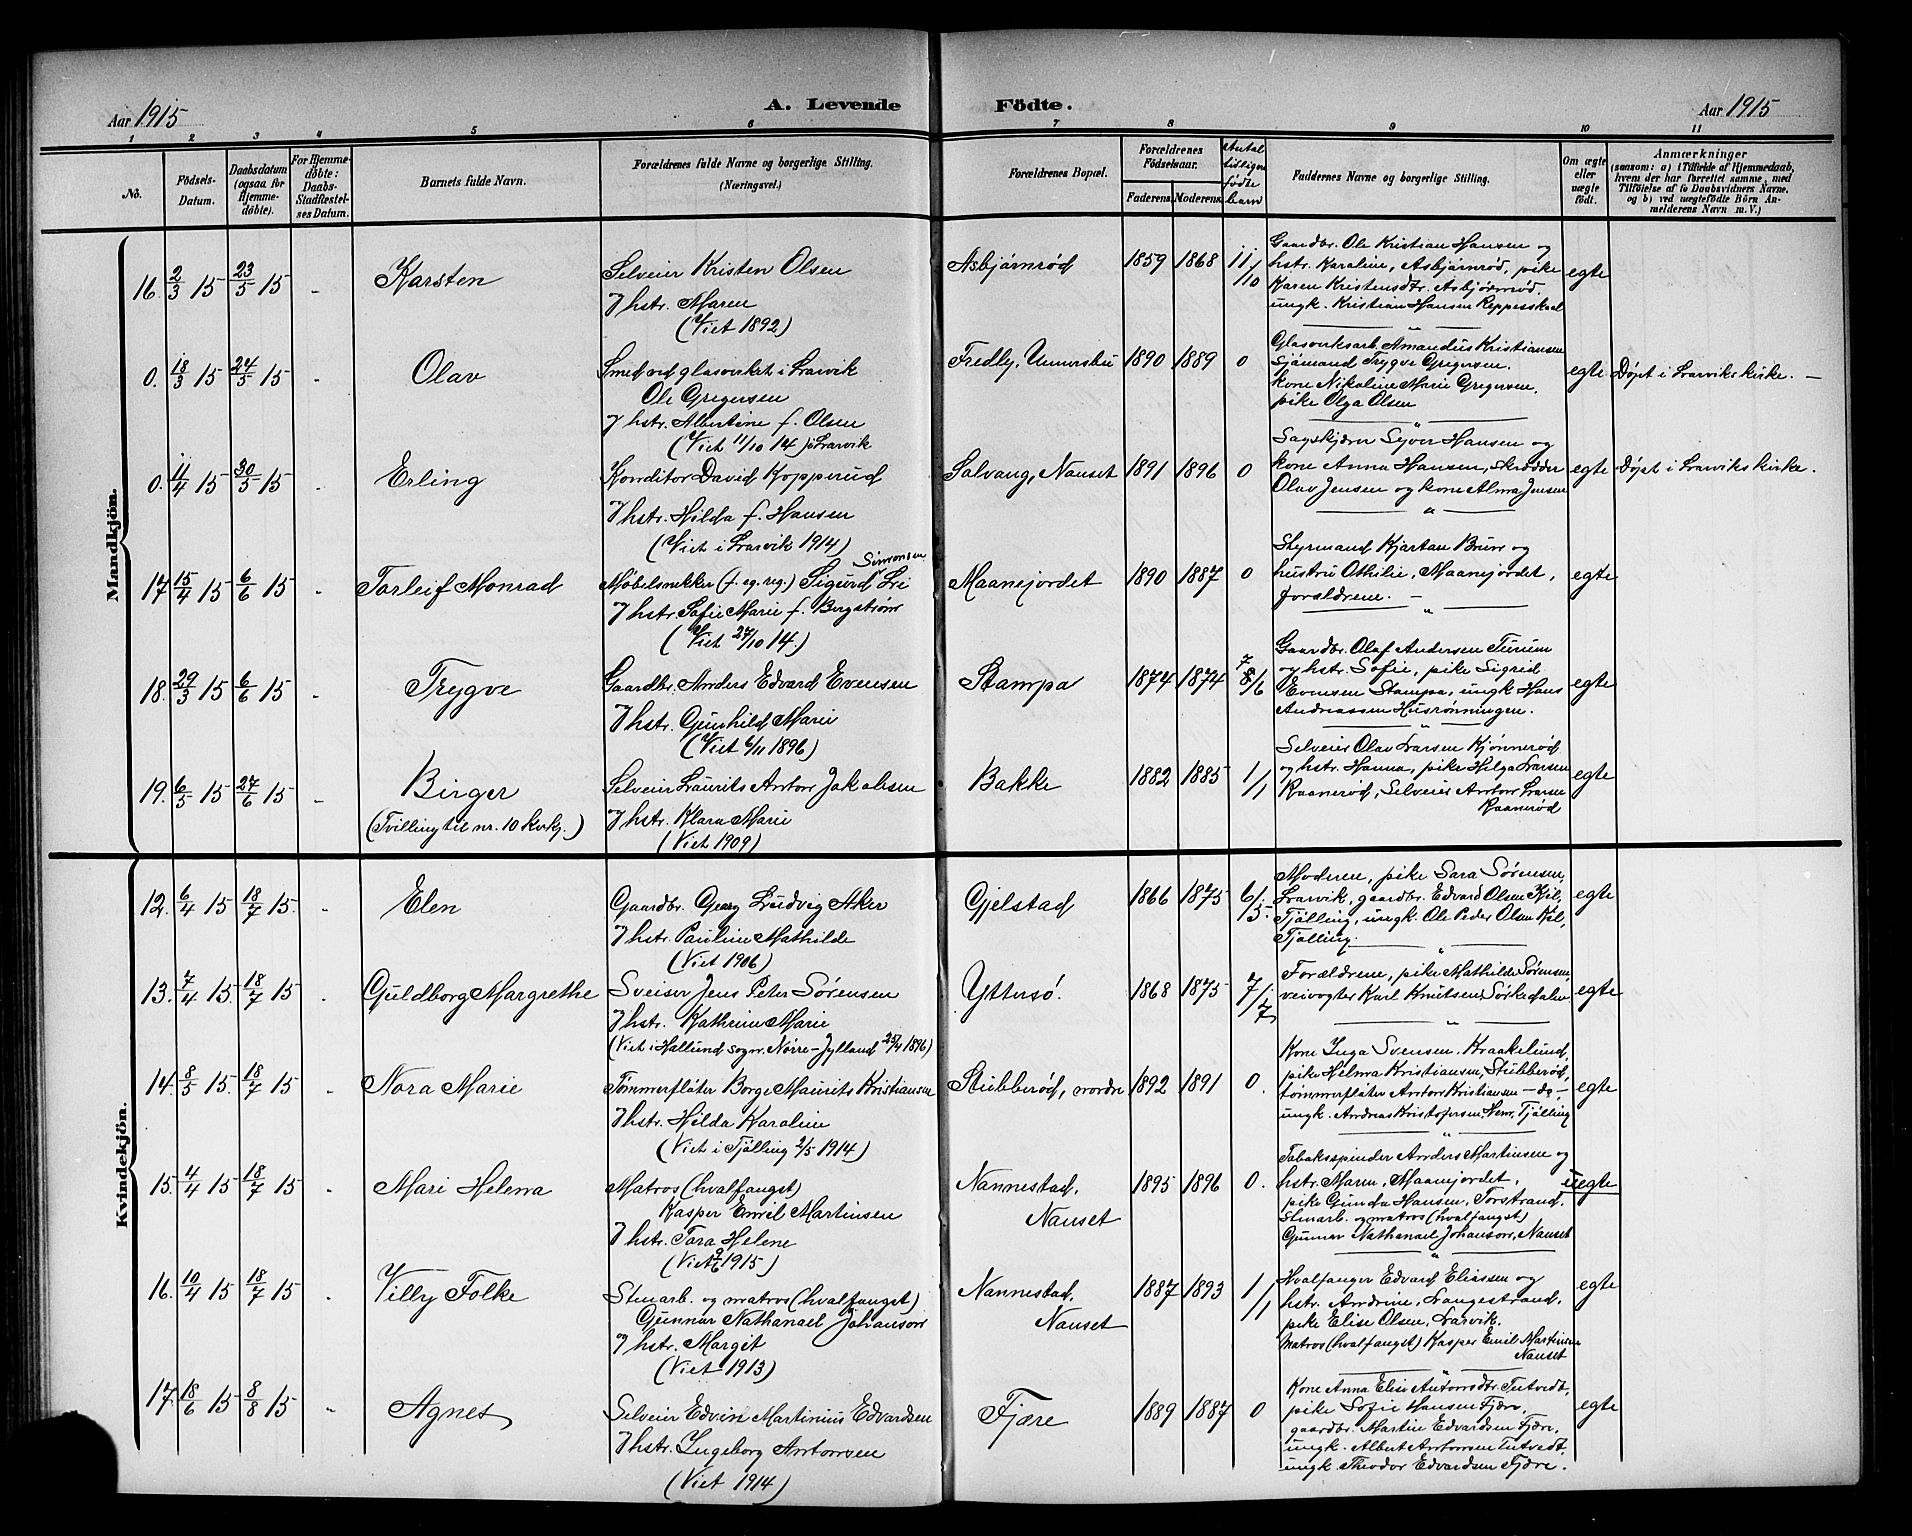 Aar 1915
A. Levende Födte.
Aar 1915
1 2 3 4 5 6 7 8 9 10 11
No.
Födsels-Datum.
Daabsdatum (ogsaa for Hjemmedöbte).
For Hjemmedöbte: Daabs-Stadfæstelses Datum.
Barnets fulde Navn.
Forældrenes fulde Navne og borgerlige Stilling. (Næringsvei.)
Forældrenes Bopæl.
Forældrenes Födselsaar.
Faderens. Moderens.
Antal tidligere födte barn
Faddernes Navne og borgerlige Stilling.
Om ægte eller uægte födt.
Anmærkninger
(saasom: a) i Tilfælde af Hjemmedaab, hvem der har forrettet samme, med Tilföielse af to Daabsvidners Navne, og b) ved uægtefödte Börn Anmelderens Navn m. V.)
Mandkjön.
16. 2/3 15 23/5 15 - Karsten
Selveier Kristen Olsen
& hstr. Maren
(Viet 1892)
Asbjörnröd 1859 1868 11/10
Gaardbr. Ole Kristian Hansen og
hstr. Karoline, Asbjörnröd, pike
Karen Kristensdtr. Asbjörnröd,
ungk. Kristian Hansen Reppesskaal
egte
0. 18/3 15 24/5 15 - Olav
Smed ved glasverket i Larvik
Ole Gregersen
& hstr. Albertine f. Olsen
(Viet 11/10 14) i Larvik
Fredly, Unnersbu 1890 1889 0
Glasverksarb. Amandus Kristiansen
Sjömand Trygve Gregersen,
kone Nikoline Marie Gregersen,
pike Olga Olsen
egte Döpt i Larviks kirke. -
0. 11/4 15 30/5 15 - Erling
Konditor David Kopperud
& hstr. Hilda f. Hansen
(Viet i Larvik 1914)
Solvang, Nanset 1891 1896 0
Sagskjærer Syver Hansen og
kone Anna Hansen, skrædder
Olav Jensen og kone Alma Jensen
egte Döpt i Larviks kirke.
17 15/4 15 6/6 15 - Torleif Monrad
Simonsen
Møbelsnekker (f. eg. reg.) Sigurd Lie
& hstr. Sofie Marie f. Bergstrøm
(Viet 27/10 14.)
Maanejordet 1890 1887 0
Styrmand Kjartan Bruun og
hustru Othilie, Maanejordet,
forældrene. -
egte
18. 29/3 15 6/6 15 - Trygve
Gaardbr. Anders Edvard Evensen
& hstr. Gunhild Marie
(Viet 6/11 1896)
Stampa 1874 1874 7 8/6
Gaardbr. Olaf Andersen Furum
og hstr. Sofie, pike Sigrid
Evensen Stampa, ungk. Hans
Andreassen Husrønningen.
egte
19. 6/5 15 27/6 15 - Birger
(Tvilling til nr. 10 kvkj.)
Selveier Laurits Anton Jakobsen
& hstr. Klara Marie
(Viet 1909)
Bakke 1882 1885 1/1
Selveier Olav Larsen Kjønnerød
og hstr. Hanna, pike Helga Larsen
Raanerød, Selveier Anton Larsen
Raanerød
egte
Kvindekjön.
12. 6/4 15 18/7 15. - Elen
Gaardbr. Georg Ludvig Aker
& hstr. Pauline Mathilde
(Viet 1906)
Gjelstad 1866 1875 6/5.
Moderen, pike Sara Sørensen,
Larvik, gaardbr. Edvard Olsen Kil,
Tjølling, ungk. Ole Peder Olsen Kil,
Tjølling.
egte
13. 7/4 15. 18/7 15. - Guldborg Margrethe
Sveiser Jens Peter Sørensen
& hstr. Kathrine Marie
(Viet i Hallund sogn, Nørre-Jylland 25/4 1896)
Yttersø. 1868 1875 7/7
Forældrene, pike Mathilde Sørensen,
veivogter Karl Knutsen, Sørkedalen
egte
14. 8/5 15. 18/7 15 - Nora Marie
Tømmerfløter Borge Maurits Kristiansen
& hstr. Hilda Karoline
(Viet i Tjølling 2/5 1914)
Stubberød, nordre 1892 1891 0.
Kone Inga Svensen, Kraakelund,
pike Helma Kristiansen, Stubberød,
tømmerfløter Anton Kristiansen - do -,
ungk. Andreas Kristofersen, Hem, Tjølling
egte
15. 4/4 15 18/7 15 - Mari Helena
Matros (hvalfangst)
Kasper Emil Martinsen
& hstr. Tora Helene
(Viet 9/6 1915)
Nannestad,
Nanset
1895 1896 0.
Tobaksspinder Anders Martinsen og
hstr. Maren, Maanejordet,
pike Gunda Hansen, Torstrand,
Stenarb. og matros (hvalfangst)
Gunnar Nathanael Johanson, Nanset
uegte
16. 10/4 15 18/7 15 - Villy Folke
Stenarb. og matros (hvalfangst)
Gunnar Nathanael Johanson
& hstr. Margit
(Viet 1913)
Nannestad,
Nanset
1887 1893 1/1
Hvalfanger Edvard Eliassen og
hstr. Andrine, Langestrand,
pike Elise Olsen, Larvik.
Matros (hvalfangst) Kasper Emil Martinsen
Nanset
egte
17. 18/6 15 8/8 15 - Agnes
Selveier Edvin Martinius Edvardsen
& hstr. Ingeborg Antonsen
(Viet 1914)
Fjære 1889 1887 0
Kone Anna Elise Antonsdtr. Tutvedt,
pike Sofie Hansen Fjære,
gaardbr. Martin Edvardsen Fjære,
ungk. Albert Antonsen Tutvedt,
ungk. Theodor Edvardsen Fjære.
egte